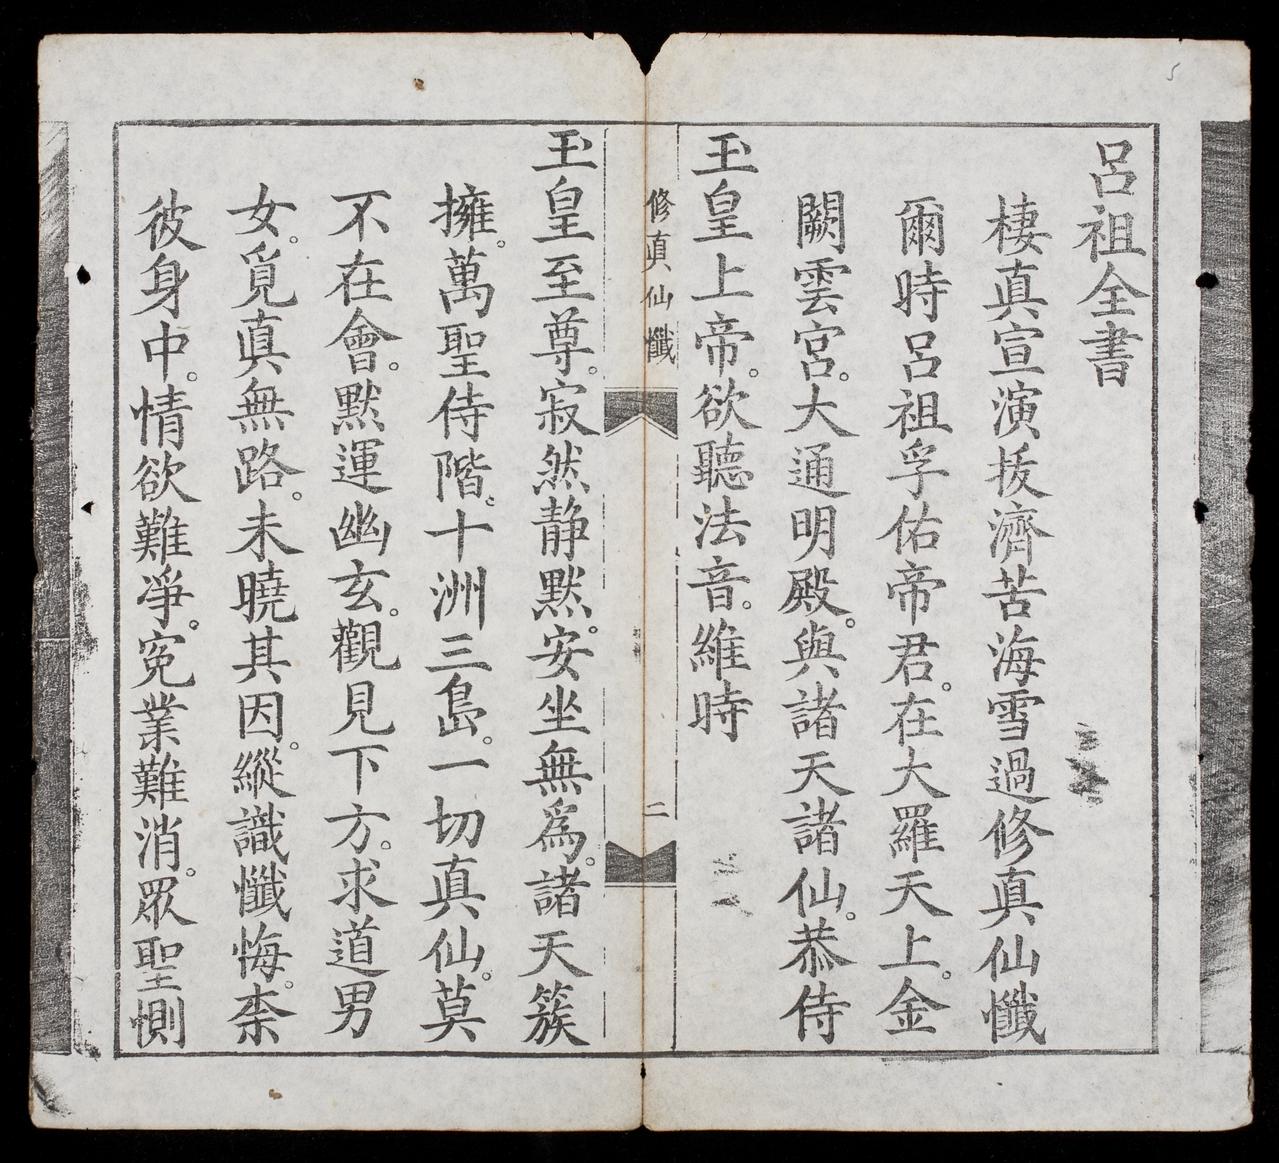 呂祖全書
棲真宣演拔濟苦海雪過修真仙懺
爾時呂祖孚佑帝君。在大羅天上。金
闕雲宮。大通明殿。與諸天諸仙。恭侍
玉皇上帝。欲聽法音。維時
修真仙懺
二
玉皇至尊。寂然静默。安坐無為。諸天簇
擁。萬聖侍階。十洲三島。一切真仙。莫
不在會。默運幽玄。觀見下方。求道男
女。覓真無路。未曉其因。縱識懺悔。柰
彼身中。情欲難凈。冤業難消。眾聖惻
5